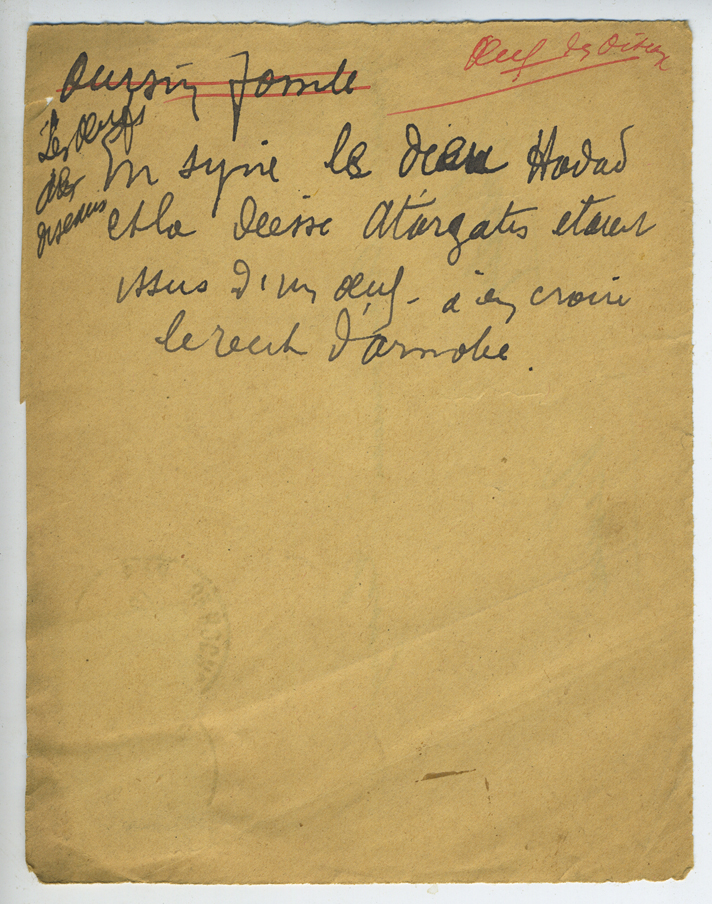 Œuf des Oiseaux
Oursin fossile
Les œufs
des
oiseaux
En syrie le dieu Hadad
et la déesse Atargatis etaient
issus d'un œuf - à en croire
le récit d'Arnobe.